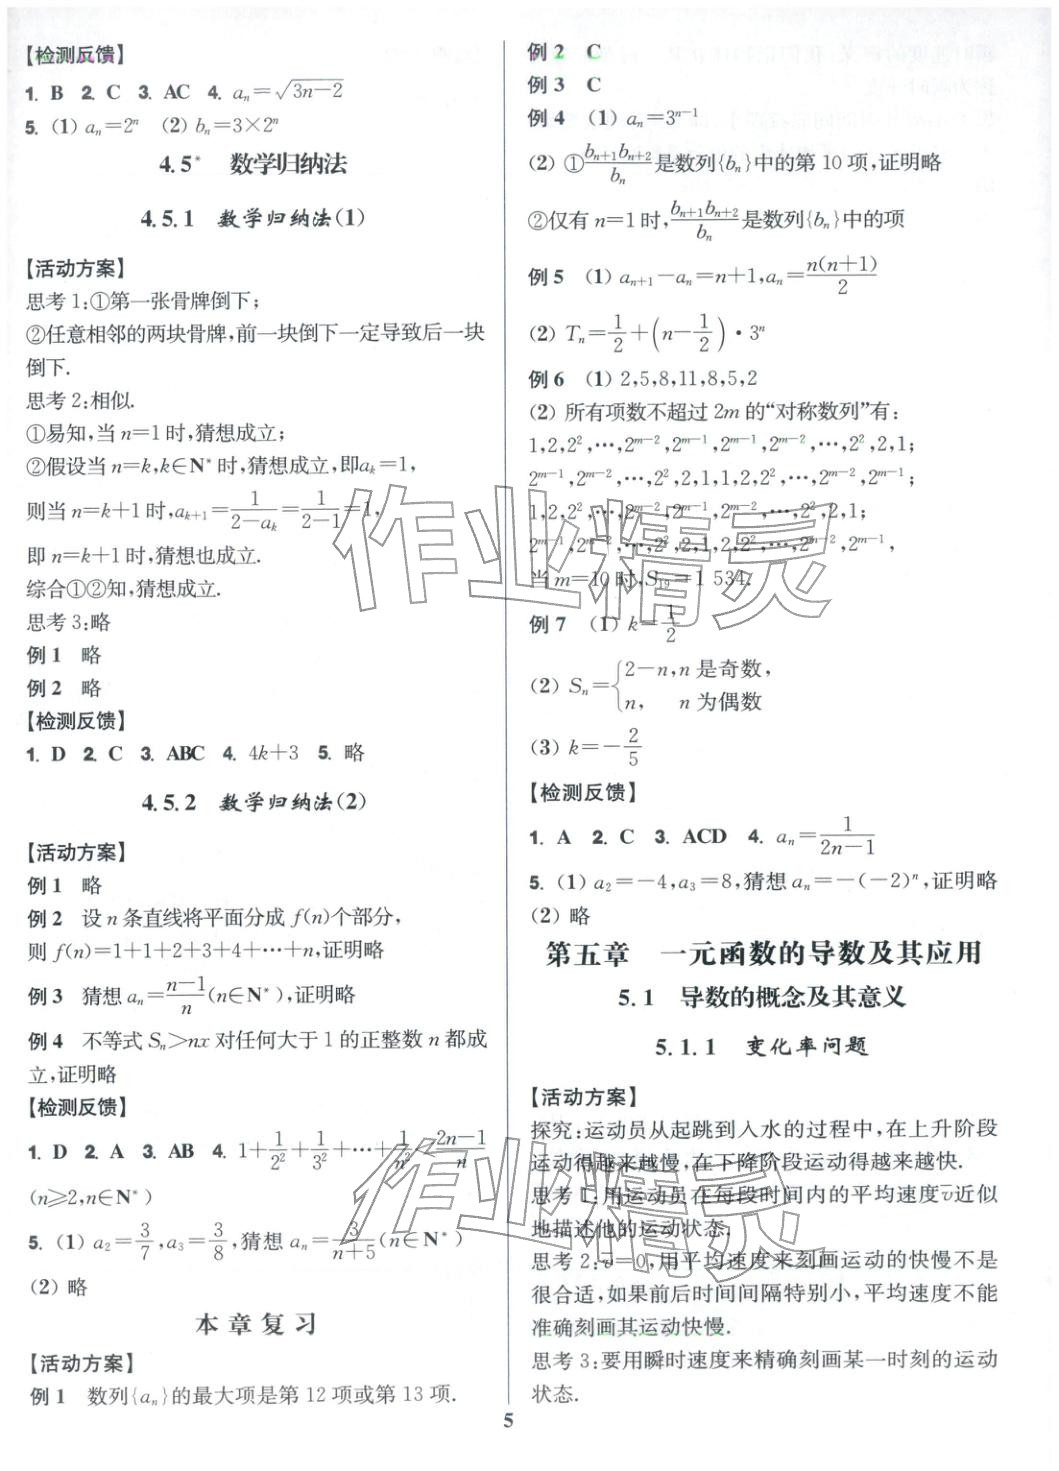 【检测反馈】
1. B 2. C 3. AC 4. aₙ=√(3n−2)
5. (1) aₙ=2ⁿ (2) bₙ=3×2ⁿ
4.5* 数学归纳法
4.5.1 数学归纳法(1)
【活动方案】
思考1:①第一张骨牌倒下;
②任意相邻的两块骨牌,前一块倒下一定导致后一块
倒下.
思考2:相似.
①易知,当 n=1 时,猜想成立;
②假设当 n=k,k∈N* 时,猜想成立,即aₖ=1,
则当 n=k+1 时,aₖ₊₁=1/(2−aₖ)=1/(2−1)=1,
即 n=k+1 时,猜想也成立.
综合①②知,猜想成立.
思考3:略
例1 略
例2 略
【检测反馈】
1. D 2. C 3. ABC 4. 4k+3 5. 略
4.5.2 数学归纳法(2)
【活动方案】
例1 略
例2 设 n 条直线将平面分成 f(n)个部分,
则 f(n)=1+1+2+3+4+⋯+n,证明略
例3 猜想 aₙ=(n−1)/n(n∈N*),证明略
例4 不等式 Sₙ>nx 对任何大于1的正整数 n 都成
立,证明略
【检测反馈】
1. D 2. A 3. AB 4. 1+1/2²+1/3²+⋯+1/n²<(2n−1)/n
(n≥2,n∈N*)
5. (1) a₂=3/7,a₃=3/8,猜想 aₙ=3/(n+5)(n∈N*)
(2) 略
本章复习
【活动方案】
例1 数列{aₙ}的最大项是第12项或第13项.
例2 C
例3 C
例4 (1) aₙ=3ⁿ⁻¹
(2) ①(bₙ₊₁bₙ₊₂)/bₙ是数列{bₙ}中的第10项,证明略
②仅有 n=1 时,(bₙ₊₁bₙ₊₂)/bₙ是数列{bₙ}中的项
例5 (1) aₙ₊₁−aₙ=n+1,aₙ=n(n+1)/2
(2) Tₙ=1/2+(n−1/2)·3ⁿ
例6 (1) 2,5,8,11,8,5,2
(2) 所有项数不超过2m的“对称数列”有:
1,2,2²,⋯,2ᵐ⁻²,2ᵐ⁻¹,2ᵐ⁻¹,2ᵐ⁻²,⋯,2²,2,1;
2ᵐ⁻¹,2ᵐ⁻²,⋯,2²,2,1,1,2,2²,⋯,2ᵐ⁻²,2ᵐ⁻¹;
1,2,2²,⋯,2ᵐ⁻²,2ᵐ⁻¹,2ᵐ⁻²,⋯,2²,2,1;
2ᵐ⁻¹,2ᵐ⁻²,⋯,2²,2,1,2,2²,⋯,2ᵐ⁻²,2ᵐ⁻¹,
当 m=10 时,S₁₉=1 534.
例7 (1) k=1/2
(2) Sₙ={2−n,n 是奇数,
n, n 为偶数
(3) k=−2/5
【检测反馈】
1. A 2. C 3. ACD 4. aₙ=1/(2n−1)
5. (1) a₂=−4,a₃=8,猜想 aₙ=−(−2)ⁿ,证明略
(2) 略
第五章 一元函数的导数及其应用
5.1 导数的概念及其意义
5.1.1 变化率问题
【活动方案】
探究:运动员从起跳到入水的过程中,在上升阶段
运动得越来越慢,在下降阶段运动得越来越快.
思考1:用运动员在每段时间内的平均速度v̄近似
地描述他的运动状态.
思考2:v̄=0,用平均速度来刻画运动的快慢不是
很合适,如果前后时间间隔特别小,平均速度不能
准确刻画其运动快慢.
思考3:要用瞬时速度来精确刻画某一时刻的运动
状态.
5
作业精灵
作业精灵